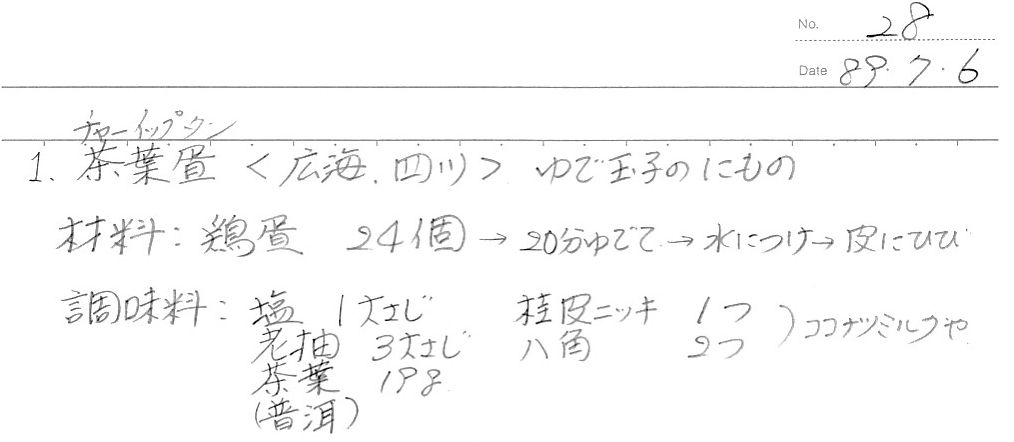 No. 28
Date 89.7.6
チャーイップタン
1. 茶葉蛋 <広海、四川> ゆで玉子のにもの
材料: 鶏蛋 24個→20分ゆでて→水につけ→皮にひび
調味料: 塩 1大さじ 桂皮ニッキ 1つ
老抽 3大さじ 八角 2つ
)ココナツミルクや
茶葉 19g
(普洱)